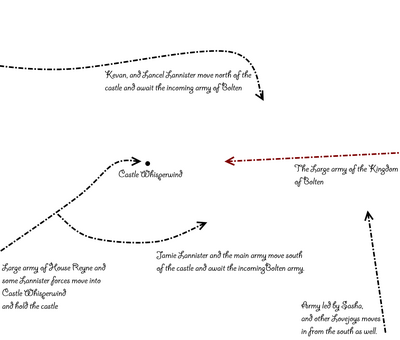 Kevan, and Lancel Lannister move north of the
castle and await the incoming army of Bolten
Castle Whisperwind
The Large army of the Kingdom
of Bolten
Jamie Lannister and the main army move south
of the castle and await the incomingBolten army.
Large army of House Reyne and
some Lannister forces move into
Castle Whisperwind
and hold the castle
Army led by Sasha,
and other Lovejoys moves
in from the south as well.